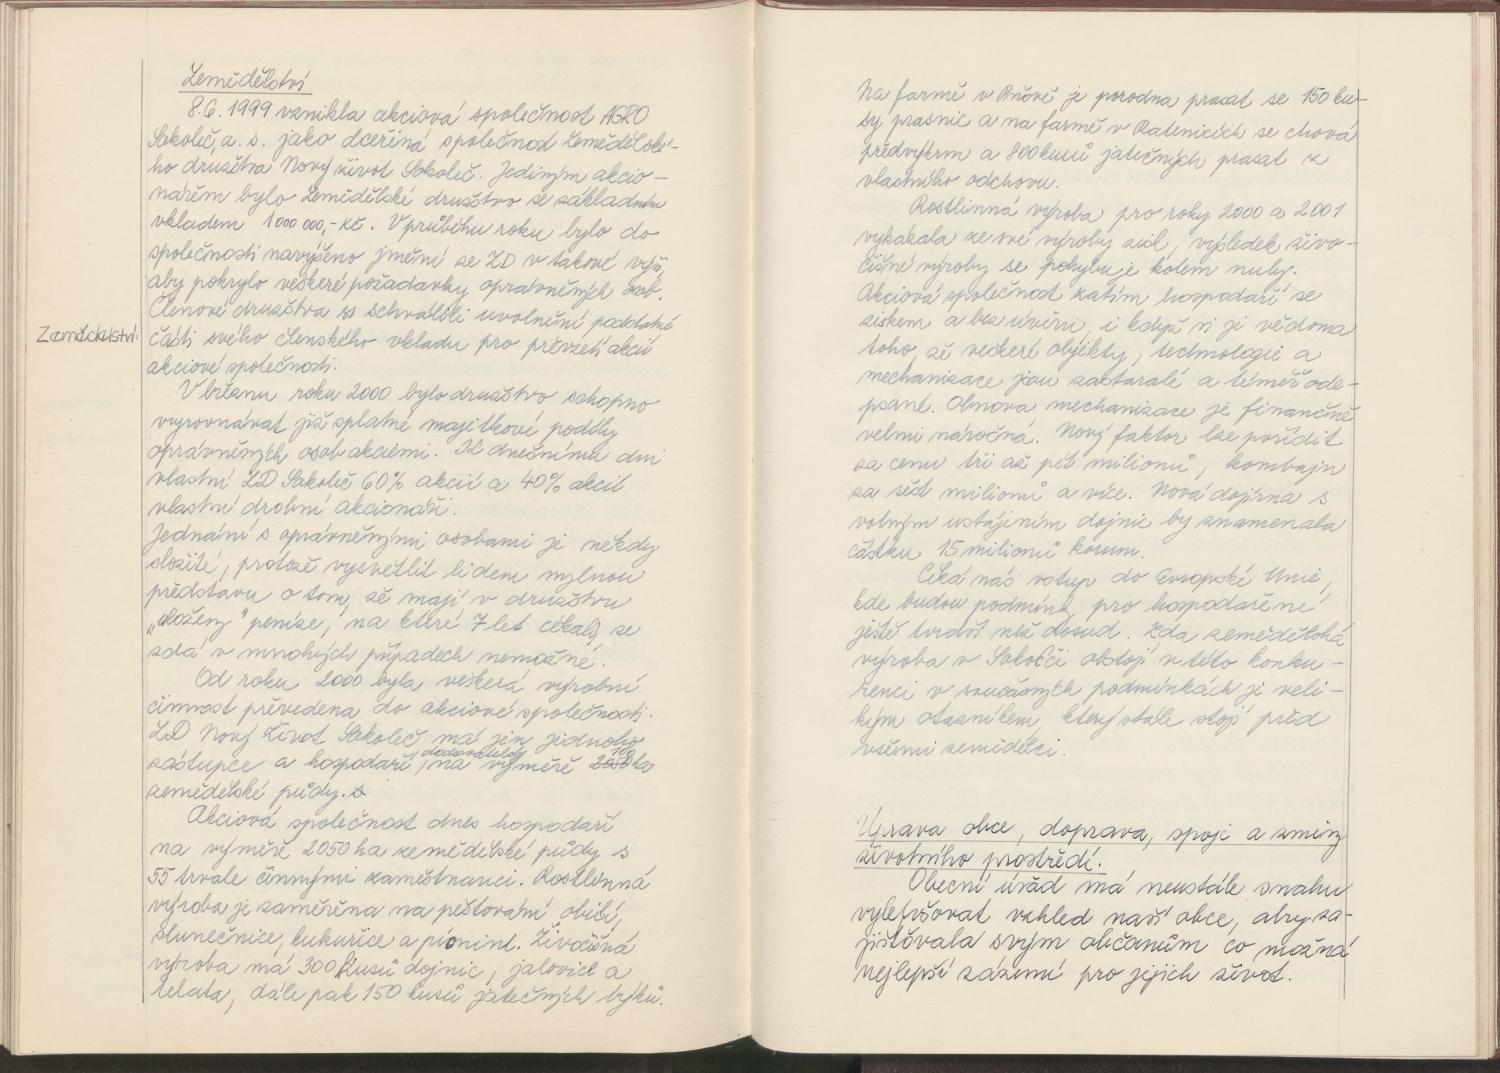 Zemědělství
8.6.1999 vznikla akciová společnost AGRO
Sokoleč, a. s. jako dceřiná společnost Zemědělské-
ho družstva Nový život Sokoleč. Jediným akcio-
nářem bylo Zemědělské družstvo se základním
vkladem 1 000 000,- Kč. V průběhu roku bylo do
společnosti navýšeno jmění ze ZD v takové výši,
aby pokrylo veškeré požadavky oprávněných osob.
Členové družstva si schválili uvolnění podstatné
Zemědělství:
části svého členského vkladu pro převzetí akcií
akciové společnosti.
V březnu roku 2000 bylo družstvo schopno
vyrovnávat již splatné majetkové podíly
oprávněných osob akciemi. K dnešnímu dni
vlastní ZD Sokoleč 60% akcií a 40% akcií
vlastní drobní akcionáři.
Jednání s oprávněnými osobami je někdy
složité, protože vysvětlit lidem mylnou
představu o tom, že mají v družstvu
„uloženy" peníze, na které 7 let čekali, se
zdá v mnohých případech nemožné.
Od roku 2000 byla veškerá výrobní
činnost převedena do akciové společnosti.
ZD Nový Život Sokoleč má jen jednoho
dodavatelsky
zástupce a hospodaří, na výměře ha
zemědělské půdy.
Akciová společnost dnes hospodaří
na výměře 2050 ha zemědělské půdy s
55 trvale činnými zaměstnanci. Rostlinná
výroba je zaměřena na pěstování obilí,
slunečnice, kukuřice a pícnin. Živočišná
výroba má 300 kusů dojnic, jalovic a
telata, dále pak 150 kusů jatečných býků.
Na farmě v Pňově je porodna prasat se 150 ku-
sy prasnic a na farmě v Ratenicích se chová
předvýkrm a 800 kusů jatečných prasat z
vlastního odchovu.
Rostlinná výroba pro roky 2000 a 2001
vykázala ze své výroby zisk, výsledek živo-
čišné výroby se pohybuje kolem nuly.
Akciová společnost zatím hospodaří se
ziskem a bez úvěru, i když si je vědoma
toho, že veškeré objekty, technologie a
mechanizace jsou zastaralé a téměř ode-
psané. Obnova mechanizace je finančně
velmi náročná. Nový traktor lze pořídit
za cenu tři až pět milionů, kombajn
za šest milionů a více. Nová dojírna s
volným ustájením dojnic by znamenala
částku 15 milionů korun.
Čeká nás vstup do Evropské Unie,
kde budou podmínky pro hospodaření
ještě tvrdší než dosud. Zda zemědělská
výroba v Sokolči obstojí v této konku-
renci v současných podmínkách je veli-
kým otazníkem, který stále stojí před
všemi zemědělci.
Úprava obce, doprava, spoje a změny
životního prostředí.
Obecní úřad má neustále snahu
vylepšovat vzhled naší obce, aby za-
jišťovala svým občanům co možná
nejlepší zázemí pro jejich život.